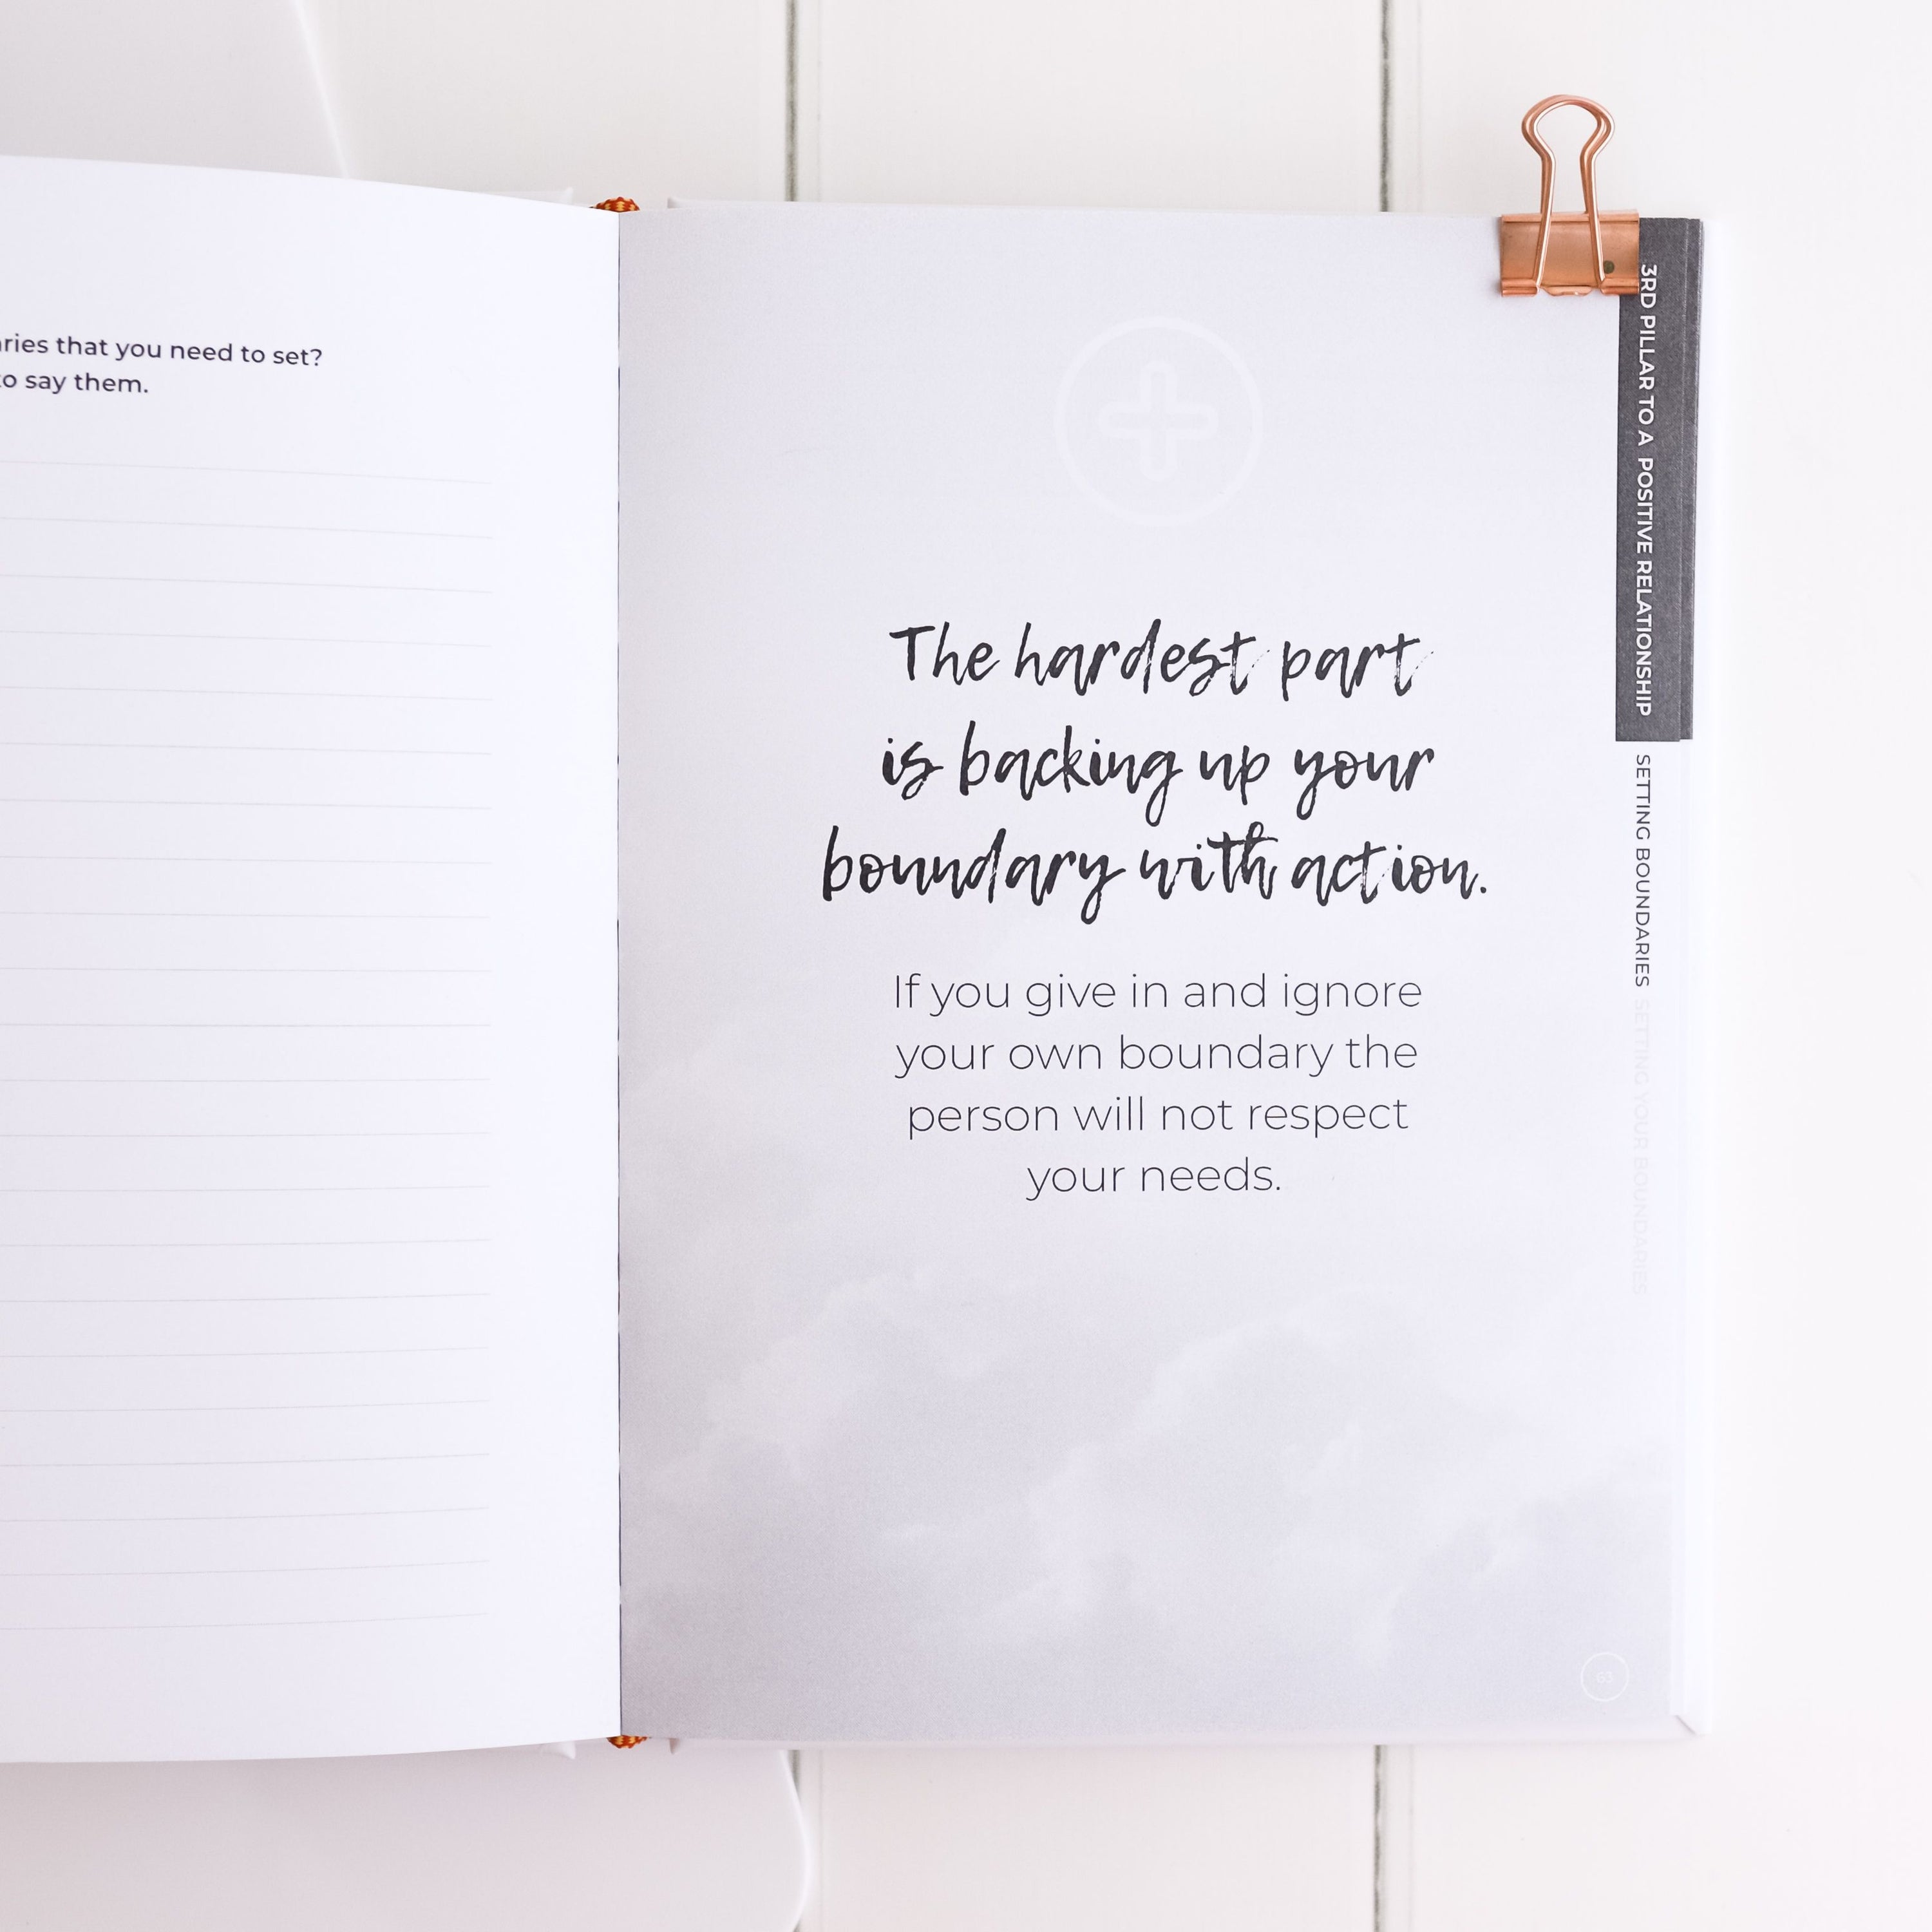 that you need to set?
say them.
The hardest part
is backing up your
boundary with action.
If you give in and ignore
your own boundary the
person will not respect
your needs.
3RD PILLAR TO A POSITIVE RELATIONSHIP SETTING BOUNDARIES SETTING YOUR BOUNDARIES